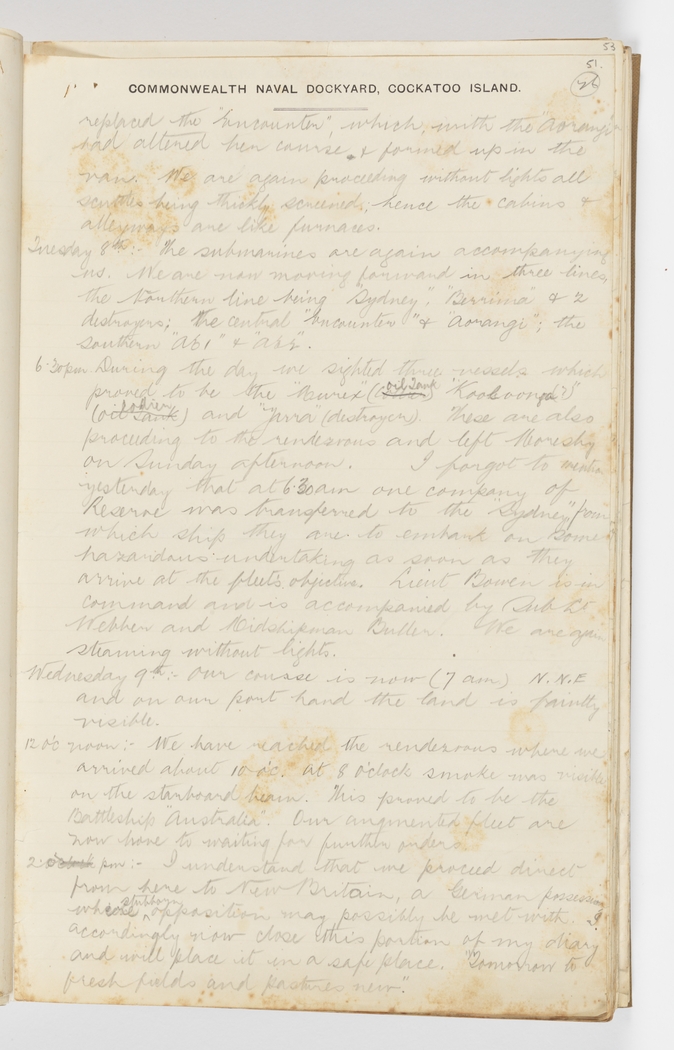 53
51.
26
COMMONWEALTH NAVAL DOCKYARD, COCKATOO ISLAND.
replaced the "Encounter", which, with the "Aorangi"
had altered her course & formed up in the
van. We are again proceeding without lights all
scuttles being thickly screened; hence the cabins &
alleyways are like furnaces.
Tuesday 8th:- The submarines are again accompanying
us. We are now moving forward in three lines,
the Northern line being "Sydney", "Berrima" & 2
destroyers; the central "Encounter" & "Aorangi"; the
southern "AE1" & "AE2".
6.30pm. During the day we sighted three vessels which
proved to be the "Murex" (oil tank) "Kooloonga(?)"
(collier) and "Yarra" (destroyer). These are also
proceeding to the rendezvous and left Moresby
on Sunday afternoon. I forgot to mention
yesterday that at 6.30am one company of
Reserve was transferred to the "Sydney", from
which ship they are to embark on some
hazardous undertaking as soon as they
arrive at the fleet's objective. Lieut Bowen is in
command and is accompanied by Sub Lt
Webber and Midshipman Buller. We are again
steaming without lights.
Wednesday 9th:- Our course is now (7 am) N.N.E
and on our port hand the land is faintly
visible.
12 o'c noon:- We have reached the rendezvous where we
arrived about 10 o'c. At 8 o'clock smoke was visible
on the starboard beam. This proved to be the
Battleship "Australia". Our augmented fleet are
now hove to waiting for further orders
2 o'clock pm:- I understand that we proceed direct
from here to New Britain, a German possession
where stubborn opposition may possibly be met with. I
accordingly now close this portion of my diary
and will place it in a safe place. "Tomorrow to
fresh fields and pastures new".